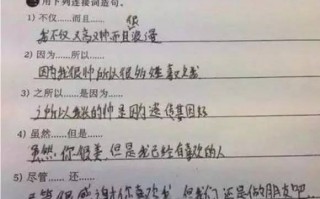 用下列连接词造句。
1) 不仅……而且……
我不仅又高又帅而且很浪漫
2) 因为……所以……
因为我很帅所以很多女生喜欢我
3) 之所以……是因为……
之所以我长的帅是因为遗传基因好
4) 虽然……但是……
虽然你很美,但是我已经有喜欢的人
5) 尽管……还是……
尽管很感谢你喜欢我,但我们还是做朋友吧…